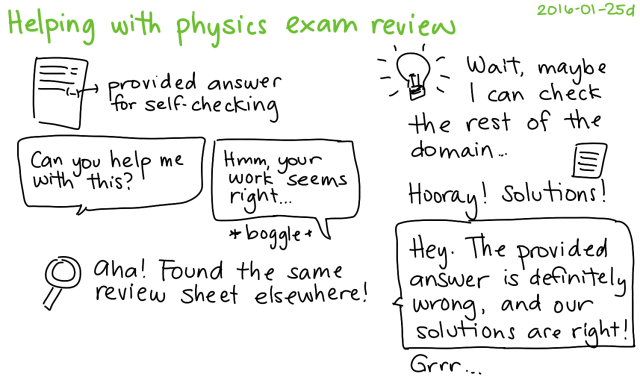 Helping with physics exam review
2016-01-25d
(-)
provided answer
for self-checking
Can you help me
with this?
Hmm, your
work seems
right...
*boggle*
aha! Found the same
review sheet elsewhere!
Wait, maybe
I can check
the rest of the
domain...
Hooray! Solutions!
Hey. The provided
answer is definitely
wrong, and our
solutions are right!
Grrr...